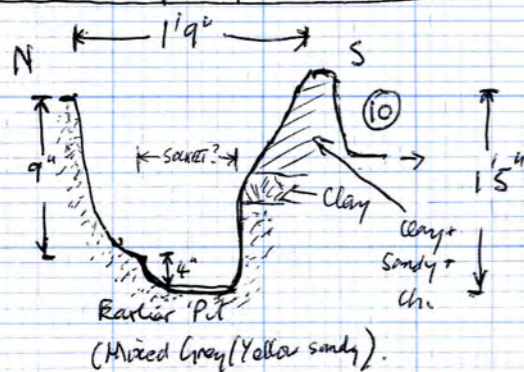 1'9"
N
S
10
9"
SOCKET?
1'5"
Clay
4"
Clay +
Sandy +
Ch.
Earlier Pit
(Mixed Grey/Yellow sandy).